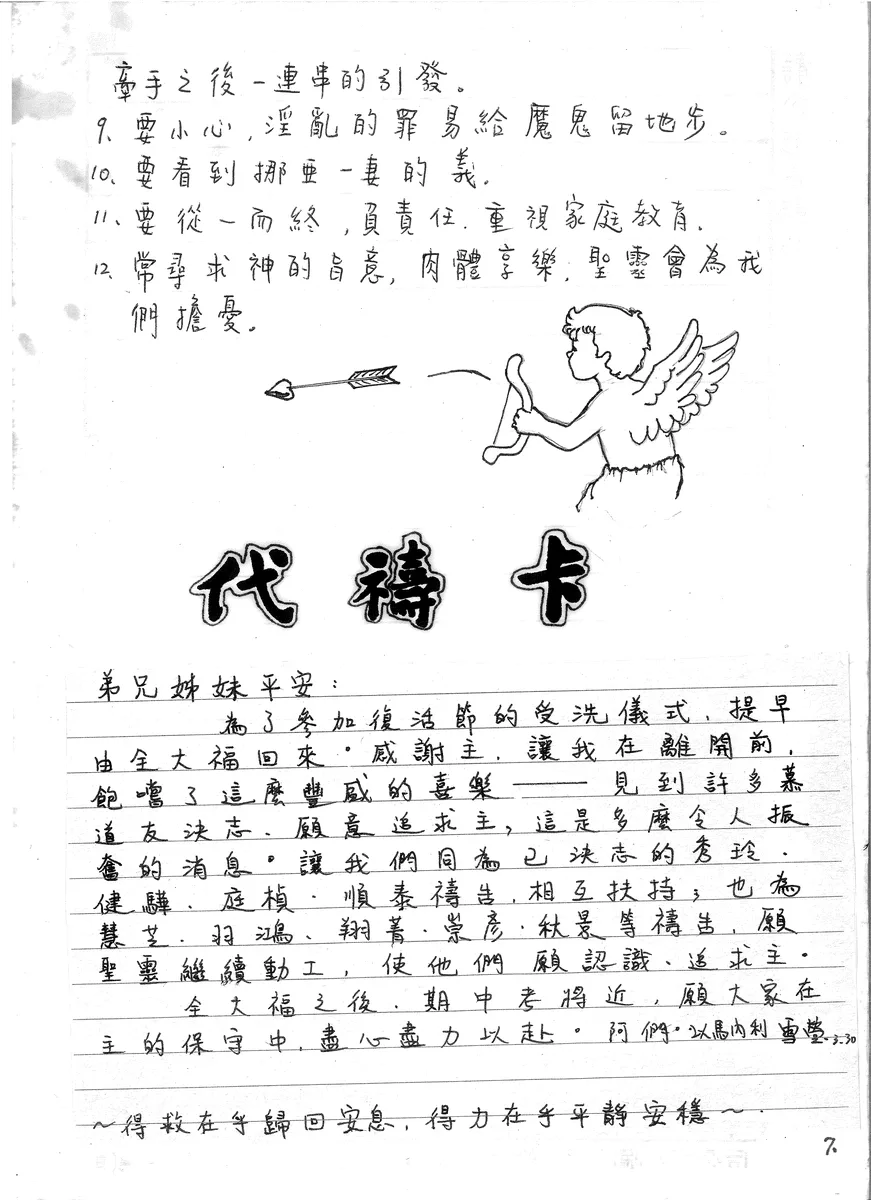 牽手之後一連串的引發。
9、要小心,淫亂的罪易給魔鬼留地步。
10、要看到挪亞一妻的義.
11、要從一而終,負責任.重視家庭教育.
12、常尋求神的旨意,肉體享樂,聖靈會為我
們擔憂。
代禱卡
弟兄姊妹平安:
為了參加復活節的受洗儀式、提早
由全大福回來。感謝主、讓我在離開前,
飽嚐了這麼豐盛的喜樂——見到許多慕
道友決志、願意追求主,這是多麼令人振
奮的消息。讓我們同為已決志的秀玲.
健驊.庭楨.順泰禱告,相互扶持;也為
慧芝.羽鴻.翔菁.崇彥.秋景等禱告,願
聖靈繼續動工,使他們願認識、追求主.
全大福之後.期中考將近,願大家在
主的保守中,盡心盡力以赴。阿們。以馬內利 雪瑩.3.30
~得救在乎歸回安息,得力在乎平靜安穩~.
7.